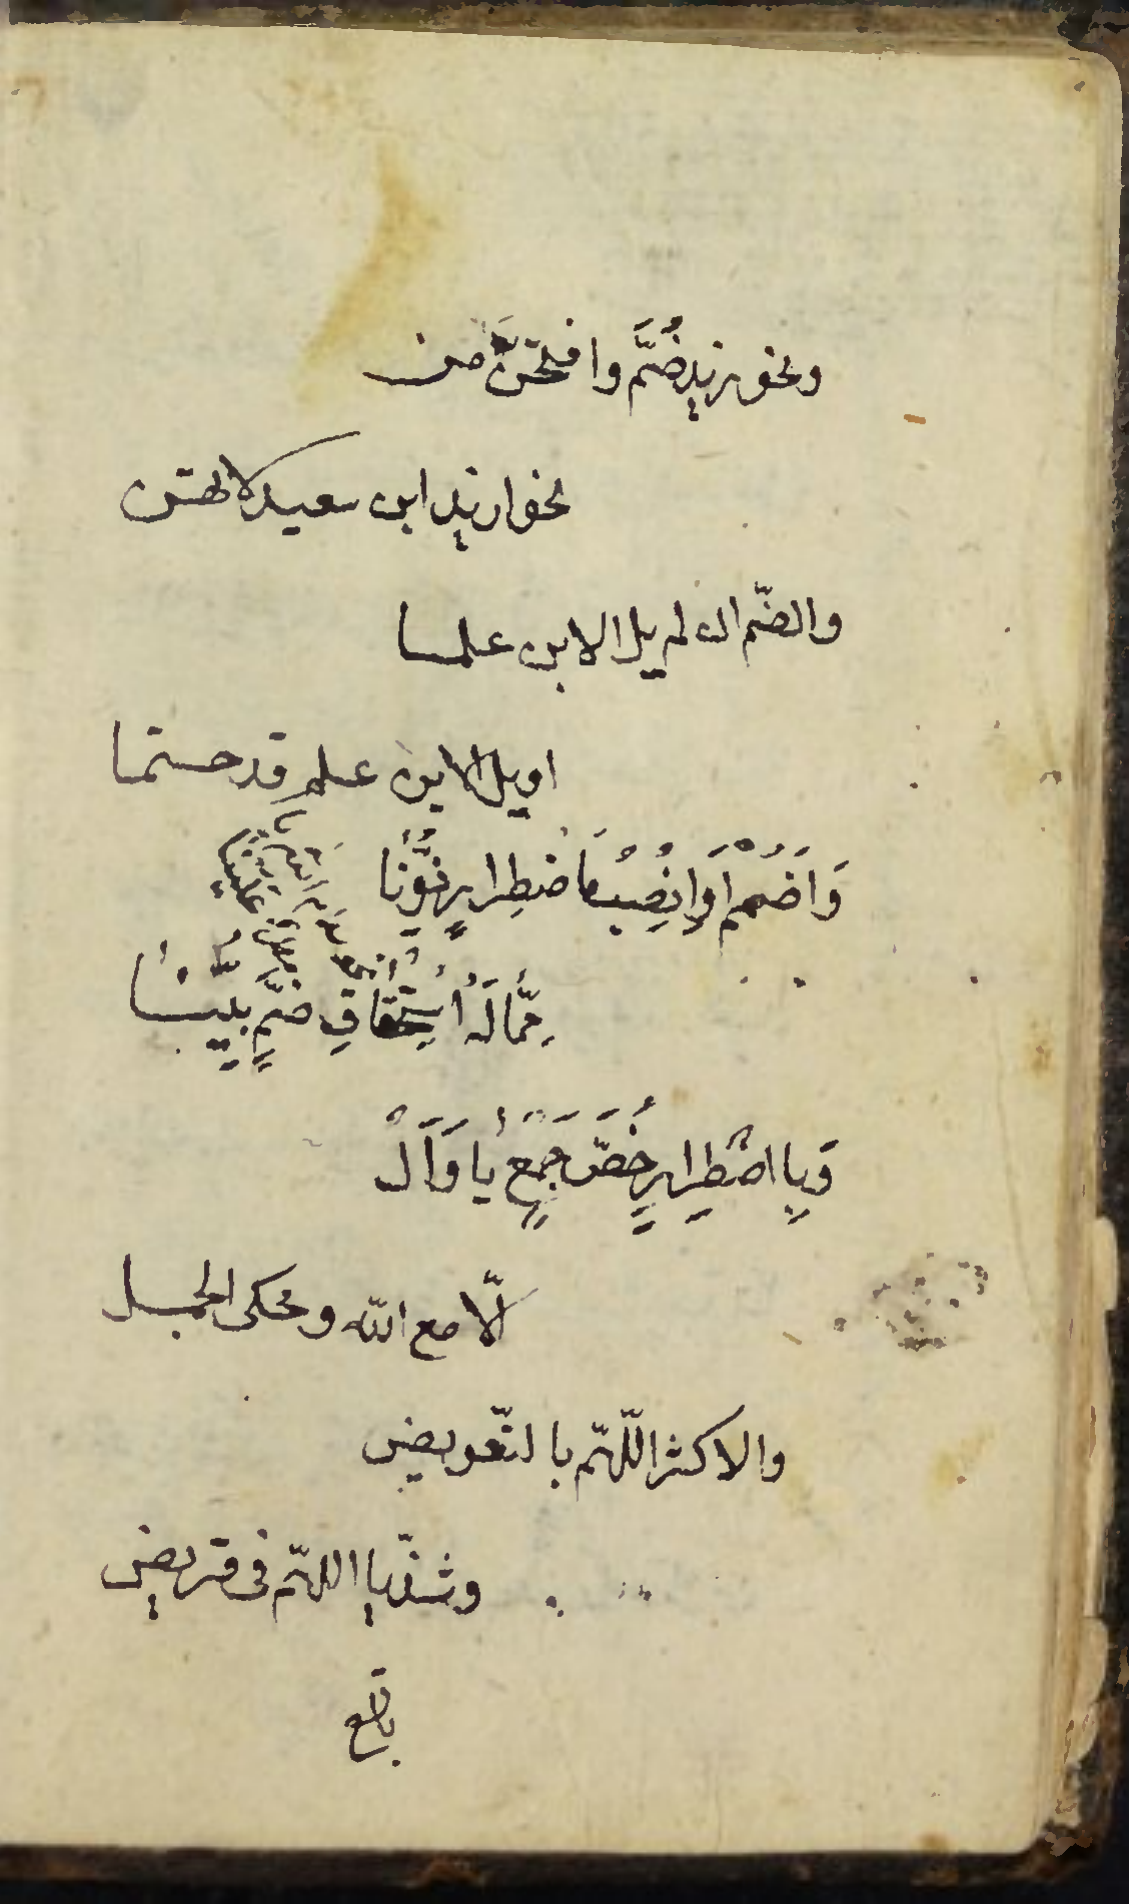 ونحو زيد ضُمَّ وافتحنَّ من
نحو ازيد ابن سعيد لا تهن
والضّم ان لم يل الابن علما
او يل الابن علم قد حتما
وَاضْمُمْ اَوِ انْصِبْ مَا اضْطِرارٍ نُوِّنَا
مِمَّا لَهُ اسْتِحْقَاقِ ضَمٍّ بُيِّنَا
وَبِاضْطِرارٍ خُصَّ جَمْعُ يَا وَاَلْ
الّا مع اللّه ومحكى الجمل
والاكثر اللّهمّ بالتّعويض
وشذّ يا اللهمّ فى قريض